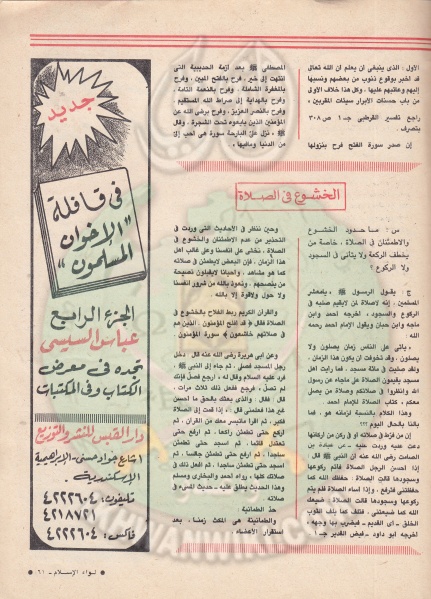 الأول : الذى ينبغى أن يعلم أن الله تعالى
قد أخبر بوقوع ذنوب من بعضهم ونسبها
إليهم وعاتبهم عليها ، وكل هذا خلاف الأولى
من باب حسنات الأبرار سيئات المقربين ،
راجع تفسير القرطبى جـ ١ ص ٣٠٨
بتصرف .
إن صدر سورة الفتح فرح بنزولها
المصطفى ﷺ بعد أزمة الحديبية التى
انتهت إلى خير ، فرح بالفتح المبين ، وفرح
بالمغفرة الشاملة ، وفرح بالنعمة التامة ،
وفرح بالهداية إلى صراط الله المستقيم ،
وفرح بالنصر العزيز ، وفرح برضى الله عن
المؤمنين الذين بايعوه تحت الشجرة ، وقال
ﷺ « نزل علىّ البارحة سورة هى أحب إلى
من الدنيا ومافيها »
الخشوع فى الصلاة
س : ما حدود الخشوع
والاطمئنان فى الصلاة ، خاصة من
يخطف الركعة ولا يتأنى فى السجود
ولا الركوع ؟
ج : يقول الرسول ﷺ ، يامعشر
المسلمين ، إنه لاصلاة لمن لايقيم صلبه فى
الركوع والسجود ، اخرجه أحمد وابن
ماجه وابن حبان ويقول الإمام أحمد رحمه
الله
، يأتى على الناس زمان يصلون ولا
يصلون ، وقد تخوفت أن يكون هذا الزمان ،
ولقد صليت فى مائة مسجد ، فما رأيت أهل
مسجد يقيمون الصلاة على ماجاء عن رسول
الله ﷺ وانظروا فى صلاتكم وصلاة من يصلى
معكم ، كتاب الصلاة للإمام أحمد
وهذا الكلام بالنسبة لزمانه هو ، فما
بالنا بالحال اليوم ؟؟؟
إن من فرط فى صلاته أو فى ركن من أركانها
دعت عليه وردت عليه ، عن عبادة بن
الصامت رضى الله عنه أن النبى ﷺ قال
إذا أحسن الرجل الصلاة فأتم ركوعها
وسجودها قالت الصلاة حفظك الله كما
حفظتنى فترفع ، وإذا أساء الصلاة فلم يتم
ركوعها وسجودها قالت الصلاة ، ضيعك
الله كما ضيعتنى ، فتلف كما يلف الثوب
الخلق ـ أى القديم ـ فيضرب بها وجهه ،
اخرجه أبو داود ـ فيض القدير جـ ١
وحين ننظر فى الأحاديث التى وردت فى
التحذير من عدم الاطمئنان والخشوع فى
الصلاة ، نخشى على أنفسنا وعلى غالب أهل
هذا الزمان ، فإن البعض لايطمئن فى صلاته
كما هو مشاهد ، وأحيانا لايقبلون نصيحة
من ينصحهم ، ونعوذ بالله من شرور أنفسنا
ولا حول ولاقوة إلا بالله .
والقرآن الكريم ربط الفلاح بالخشوع فى
الصلاة فقال ﴿ قد أفلح المؤمنون . الذين هم
فى صلاتهم خاشعون ﴾ سورة المؤمنون .
وعن أبى هريرة رضى الله عنه قال . دخل
رجل المسجد فصلى ، ثم جاء إلى النبى ﷺ
فرد عليه السلام وقال له ، ارجع فصل فإنك
لم تصل ، فرجع ففعل ذلك ثلاث مرات ،
قال . فقال . والذى بعثك بالحق ما أحسن
غير هذا فعلمنى قال . إذا قمت إلى الصلاة
فكبر ، ثم اقرأ ماتيسر معك من القرآن ،
ثم اركع حتى تطمئن راكعا ، ثم ارفع حتى
تعتدل قائما ، ثم اسجد حتى تطمئن
ساجدا ، ثم ارفع حتى تطمئن جالسا ، ثم
اسجد حتى تطمئن ساجدا ، ثم افعل ذلك فى
صلاتك كلها ، رواه أحمد والبخارى ومسلم
وهذا الحديث يطلق عليه ، حديث المسىء فى
صلاته
حد الطمأنينة :
والطمأنينة هى المكث زمنا ، بعد
استقرار الأعضاء .
جديد
فى قافلة
"الإخوان
المسلمون"
الجزء الرابع
عباس السيسى
تجده فى معرض
الكتاب وفى المكتبات
دار القبس للنشر والتوزيع
١ شارع جواد حسنى - الإبراهيمية
الإسكندرية .
تليفون : ٤٢٢٣٦٠٤
٤٢١٨٧٢١
فاكس : ٤٢٢٣٦٠٤
● لواء الإسلام ـ ٦١ ●